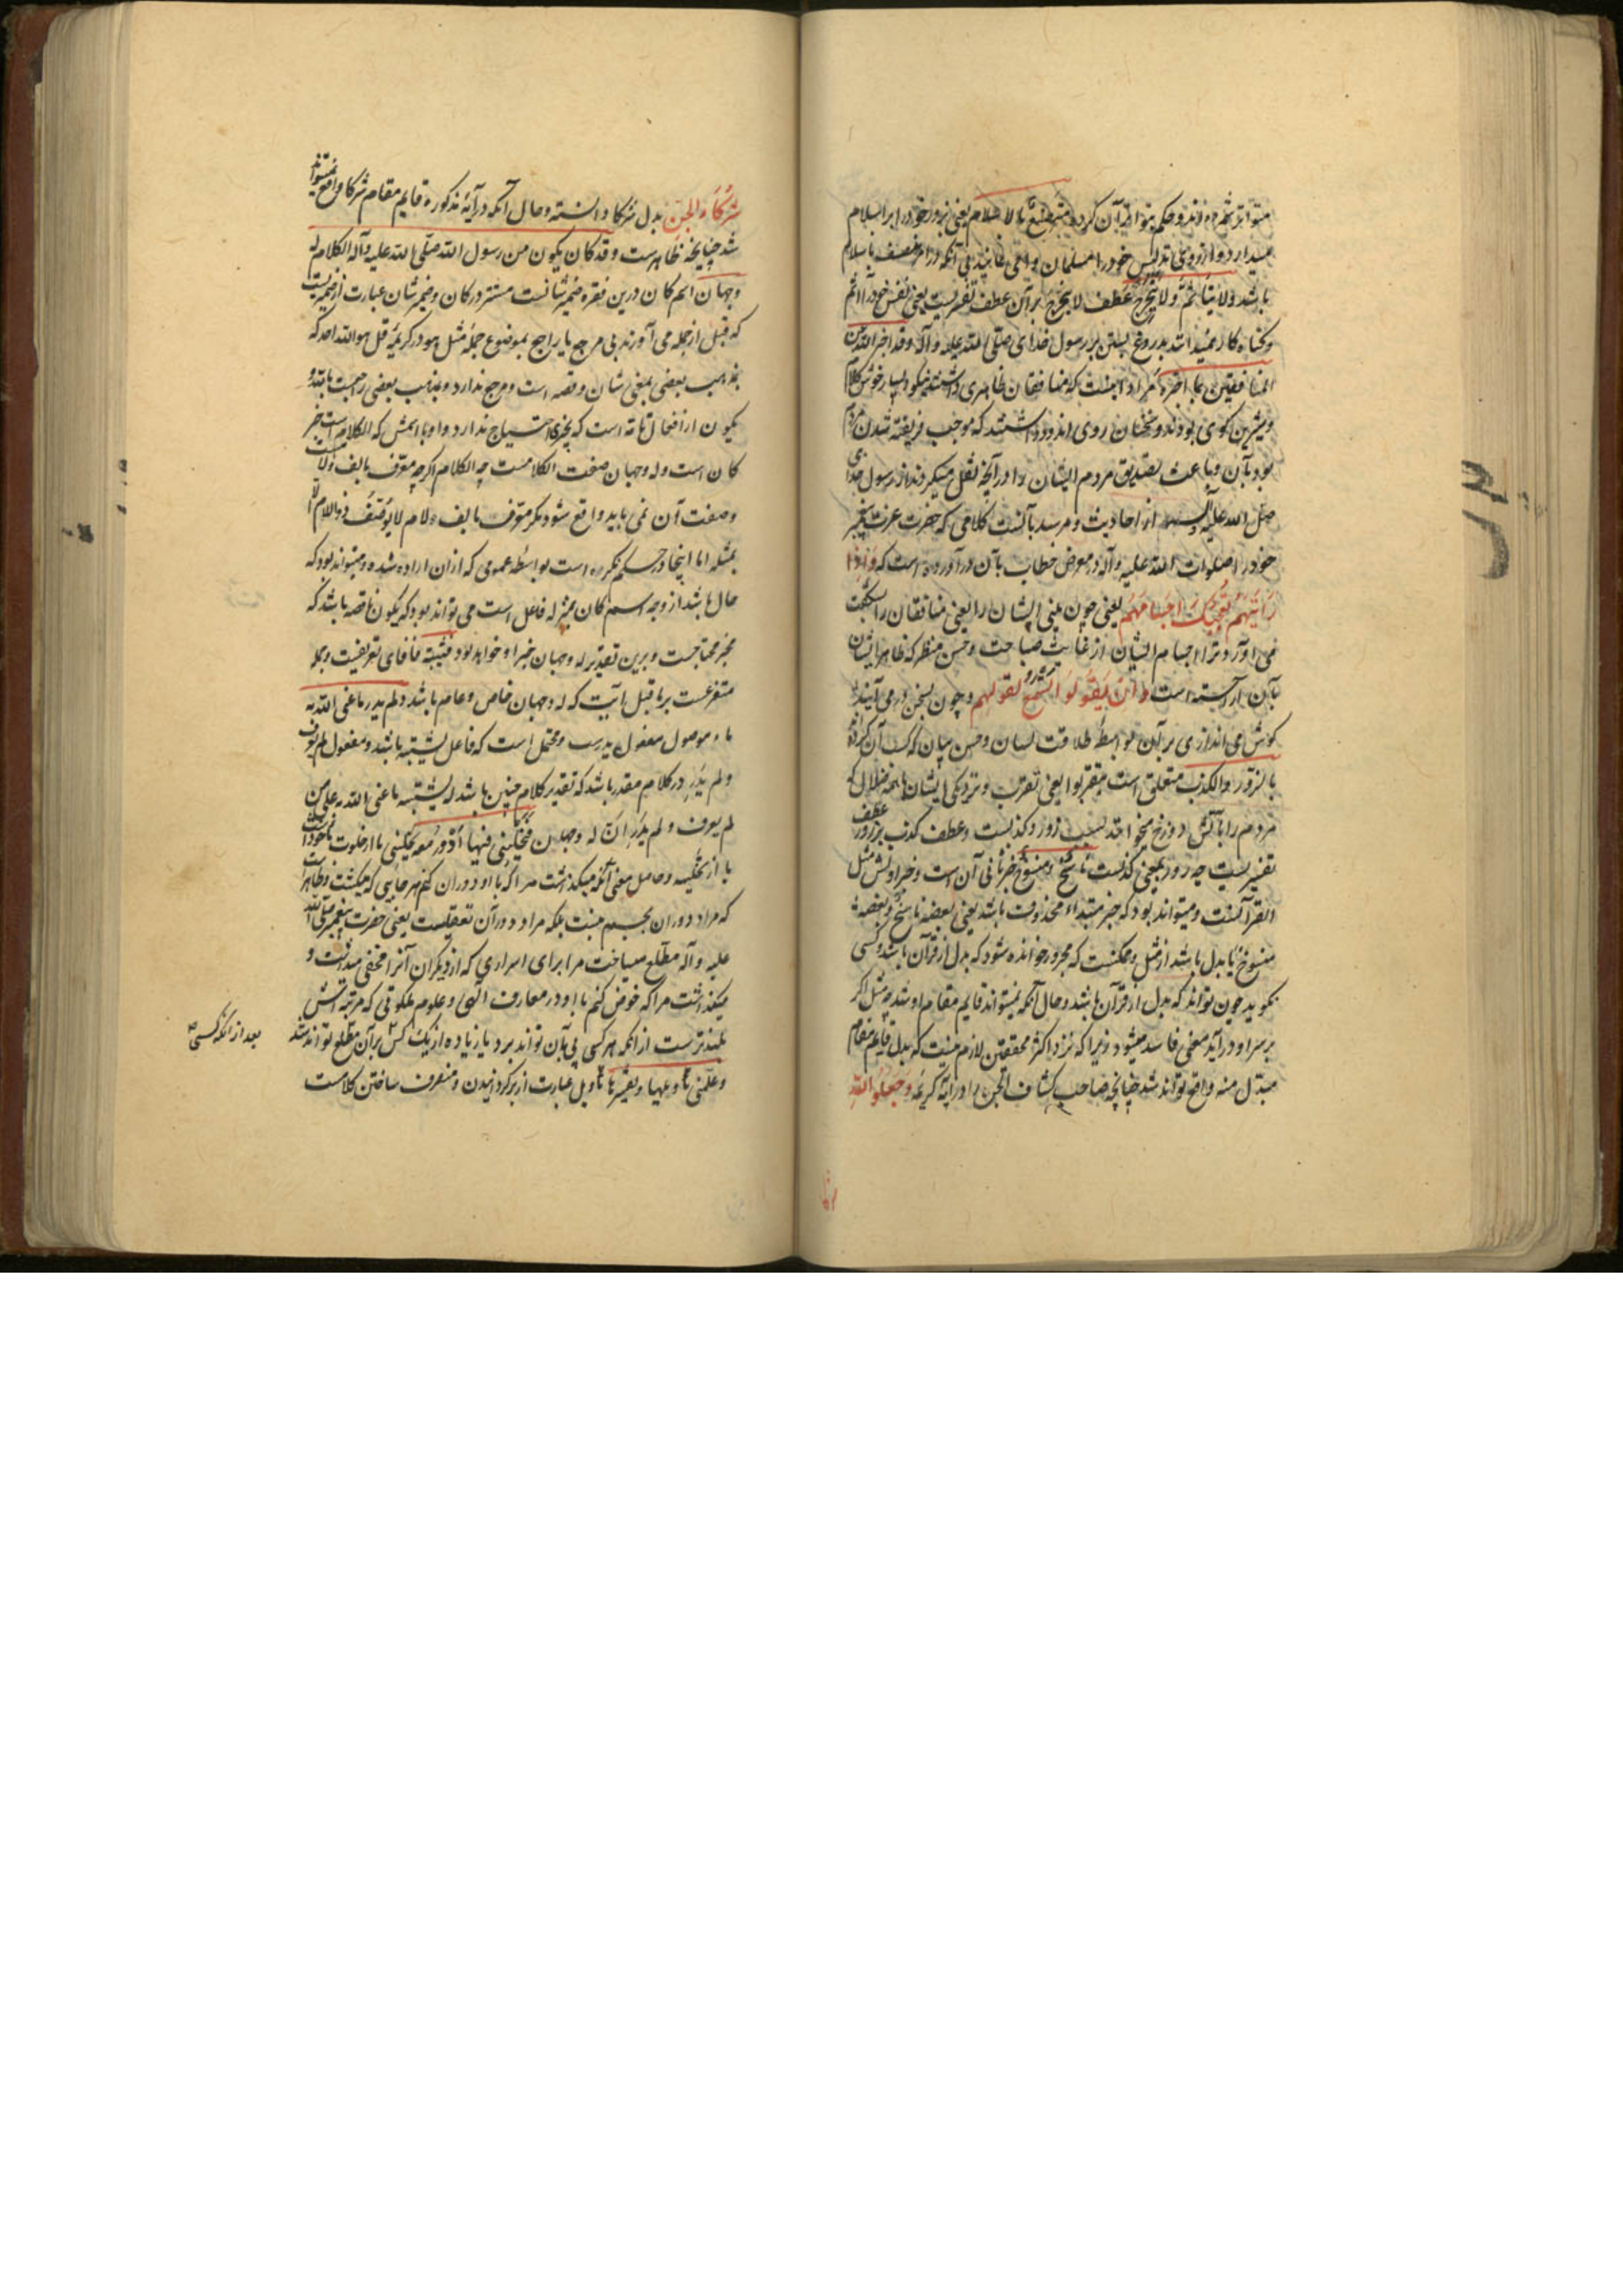 متواتر شمرده اند و حکم بتواتر آن کرده متصنع بالاسلام یعنی بزور خود را بر اسلام
میدارد و از روی تدلیس خود را مسلمان وامی نماید بی آنکه در امر متصف باسلام
باشد ولا یتاثم ولا یتحرج عطف لا یتحرج بر آن عطف تفسیریست یعنی نفس خود را آثم
و کناه کار نمیداند بدروغ بستن بر رسول خدای صلی الله علیه و آله وقد اخبر الله عن
المنافقین بما اخبره مراد اینست که منافقان ظاهری داشتند نیکو و بسیار خوش کلام
و شیرین کوی بودند و سخنان روی اندود داشتند که موجب فریفته شدن مردم
بود بآن و باعث تصدیق مردم ایشان را در آنچه نقل میکردند از رسول خدای
صلی الله علیه و آله از احادیث و مرسد بآنست کلامی که حضرت عزت پیغمبر
خود را صلوات الله علیه و آله در معرض خطاب بآن در آورده است که واذا
رأیتهم تعجبک اجسامهم یعنی چون بینی ایشان را یعنی منافقان را بشکفت
می آورد ترا اجسام ایشان از غایت صباحت و حسن منظر که ظاهر ایشان
بآن آراسته است وان یقولوا تسمع لقولهم و چون بسخن درمی آیند
کوش می اندازی بر آن بواسطه طلاقت لسان و حسن بیان که کسب آن کرده اند
بالزور والکذب متعلق است بتقربوا یعنی تقرب و نزدیکی ایشان بائمه ضلال که
مردم را بآتش دوزخ میخوانند بسبب زور و کذبست و عطف کذب بر زور عطف
تفسیریست چه زور بمعنی کذبست ناسخ و منسوخ خبر ثانی آن است و خبر اولش مثل
القرآنست و میتواند بود که خبر مبتداء محذوف باشد یعنی بعضه ناسخ و بعضه
منسوخ یا بدل باشد از مثل و ممکنست که مجرور خوانده شود که بدل از قرآن باشد و کسی
نکوید چون تواند که بدل از قرآن باشد و حال آنکه نمیتواند قایم مقام او شد چه مثل اکر
بر سر او در آید معنی فاسد میشود زیرا که نزد اکثر محققین لازم نیست که بدل قایم مقام
مبدل منه واقع تواند شد چنانچه صاحب کشاف الجن را در آیه کریمه وجعلوا لله
شرکاء الجن بدل شرکا دانسته و حال آنکه در آیه مذکوره قایم مقام شرکا واقع نمیتواند
شد چنانچه ظاهرست وقد کان یکون من رسول الله صلی الله علیه وآله الکلام له
وجهان اسم کان درین فقره ضمیر شانست مستتر در کان و ضمیر شان عبارت از ضمیریست
که قبل از جمله می آورند بی مرجع یا راجع بموضوع جمله مثل هو در کریمه قل هو الله احد که
بمذهب بعضی بمعنی شان و قصه است و مرجع ندارد و بمذهب بعضی راجعست بالله و
یکون از افعال تامه است که بخبری احتیاج ندارد و او با اسمش که الکلام است خبر
کان است و له وجهان صفت الکلامست چه الکلام اکرچه معرف بالف و لامست
و صفت آن نمی باید واقع شود مکر معرف بالف و لام لا یوصف ذو اللام الا
بمثله اما اینجا در حکم نکره است بواسطه عمومی که ازان اراده شده و میتواند بود که
حال باشد از وجه اسم کان بمنزله فاعل است می تواند بود که یکون ناقصه باشد که
بخبر محتاجست و برین تقدیر له وجهان خبر او خواهد بود فیشتبه فا فای تعریفیست و جمله
متفرعست بر ما قبل بآیت که له وجهان خاص و عام باشد و لم یدر ما عنی الله به
ماء موصول مفعول یدرست و محتمل است که فاعل یشتبه باشد و مفعول لم یعرف
ولم یدر در کلام مقدر باشد که تقدیر کلام چنین باشد له یشتبه ما عنی الله به علی من
لم یعرف ولم یدر ان له وجهان فیخلینی فیها ادور معه یخلینی یا از خلوت ماخوذست
یا از تخلیه و حاصل معنی آنکه میکذاشت مرا که با او دوران کنم هر جایی که میکشت و ظاهرست
که مراد دوران بجسم نیست بلکه مراد دوران تعقلیست یعنی حضرت پیغمبر صلی الله
علیه و آله مطلع میساخت مرا برای اسراری که از دیکران آنرا مخفی میداشت و
میکذاشت مرا که خوض کنم با او در معارف الهی و علوم ملکوتی که مرتبه اش
بلندترست از آنکه هر کسی پی بآن تواند برد یا زیاده از یک کس بر آن مطلع تواند شد
بعد از آنکه کسی
وعلمنی تاویلها و تفسیرها تاویل عبارت از برکردانیدن و منصرف ساختن کلامست